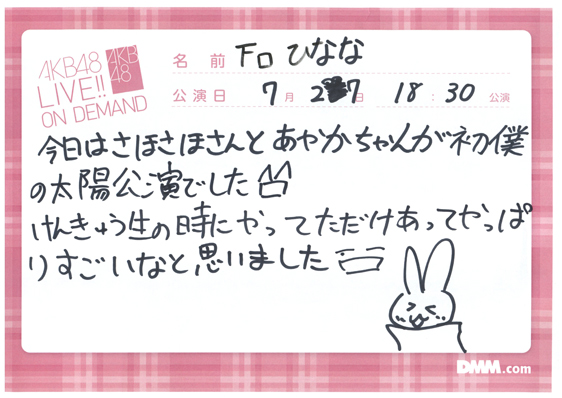 AKB48
LIVE!!
ON DEMAND
AKB
48
名前 下口ひなな
公演日 7月 27日 18:30 公演
今日はさほさほさんとあやかちゃんが初僕
の太陽公演でした
けんきゅう生の時にやってただけあってやっぱ
りすごいなと思いました
DMM.com